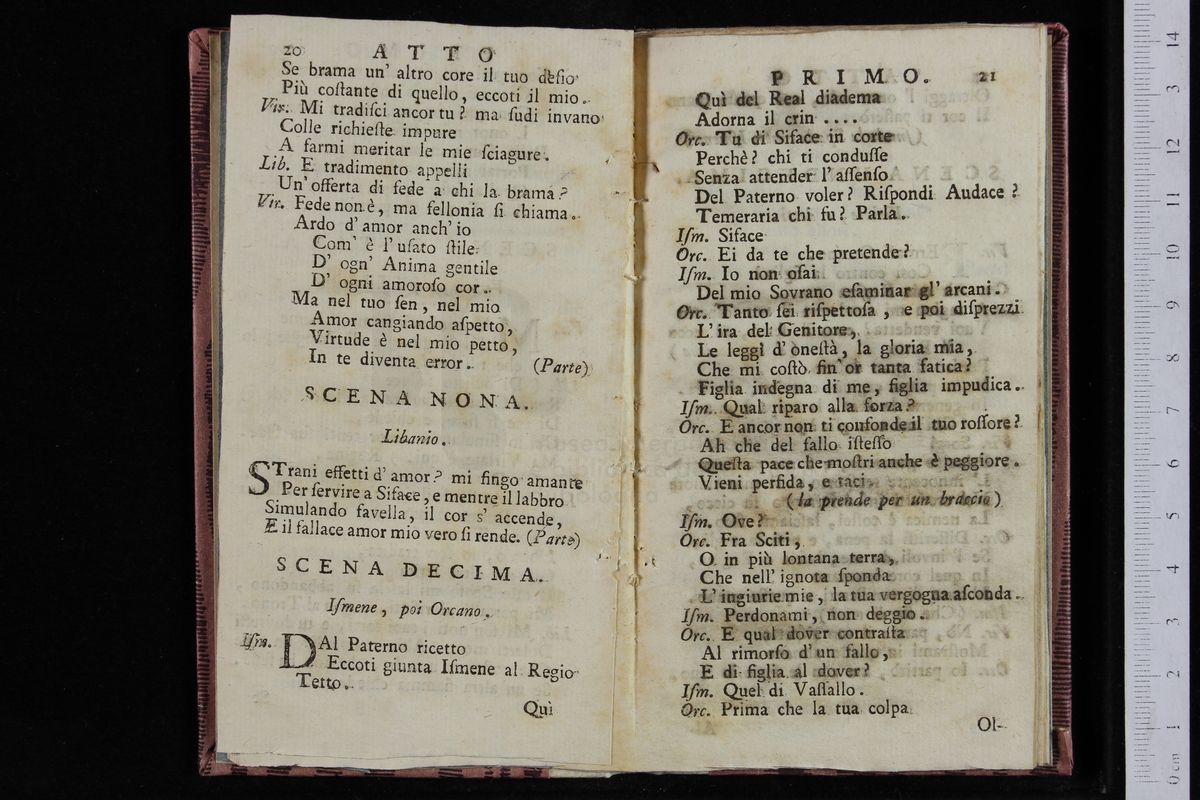 20 ATTO
Se brama un' altro core il tuo desio
Più coſtante di quello, eccoti il mio.
Vir. Mi tradiſci ancor tu? ma ſudi invano
Colle richieſte impure
A farmi meritar le mie ſciagure.
Lib. E tradimento appelli
Un' offerta di fede a chi la brama?
Vir. Fede non è, ma fellonia ſi chiama.
Ardo d' amor anch' io
Com' è l' uſato ſtile
D' ogn' Anima gentile
D' ogni amoroſo cor.
Ma nel tuo ſen, nel mio
Amor cangiando aſpetto,
Virtude è nel mio petto,
In te diventa error. (Parte)
SCENA NONA.
Libanio.
STrani effetti d' amor? mi fingo amante
Per ſervire a Siface, e mentre il labbro
Simulando favella, il cor s' accende,
E il fallace amor mio vero ſi rende. (Parte)
SCENA DECIMA.
Iſmene, poi Orcano.
Iſm. DAl Paterno ricetto
Eccoti giunta Iſmene al Regio
Tetto.
Quì
PRIMO. 21
Quì del Real diadema
Adorna il crin ....
Orc. Tu di Siface in corte
Perchè? chi ti conduſſe
Senza attender l' aſſenſo
Del Paterno voler? Riſpondi Audace?
Temeraria chi fu? Parla.
Iſm. Siface
Orc. Ei da te che pretende?
Iſm. Io non oſai
Del mio Sovrano eſaminar gl' arcani.
Orc. Tanto ſei riſpettoſa, e poi diſprezzi
L' ira del Genitore,
Le leggi d' oneſtà, la gloria mia,
Che mi coſtò fin' or tanta fatica?
Figlia indegna di me, figlia impudica.
Iſm. Qual riparo alla forza?
Orc. E ancor non ti confonde il tuo roſſore?
Ah che del fallo iſteſſo
Queſta pace che moſtri anche è peggiore.
Vieni perfida, e taci
(la prende per un braccio)
Iſm. Ove?
Orc. Fra Sciti,
O in più lontana terra,
Che nell' ignota ſponda
L' ingiurie mie, la tua vergogna aſconda.
Iſm. Perdonami, non deggio.
Orc. E qual dover contraſta
Al rimorſo d' un fallo,
E di figlia al dover?
Iſm. Quel di Vaſſallo.
Orc. Prima che la tua colpa
Ol-
14
13
12
11
10
9
8
7
6
5
4
3
2
1
0 cm